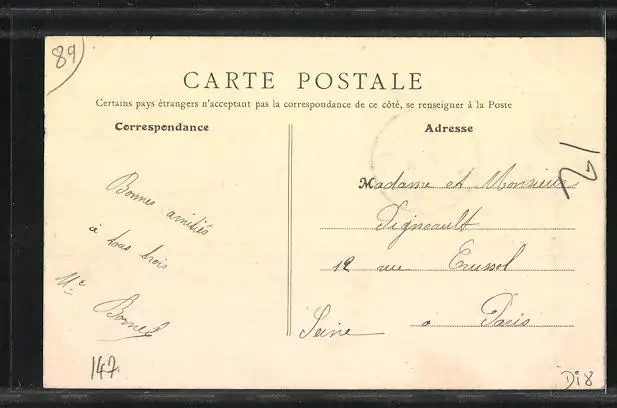 89
CARTE POSTALE
Certains pays étrangers n'acceptant pas la correspondance de ce côté, se renseigner à la Poste
Correspondance
Adresse
12
Bonnes amitiés
à tous trois
Madame et Monsieur
Pigneault
12 rue Crussol
à Paris
Seine
147
Di8